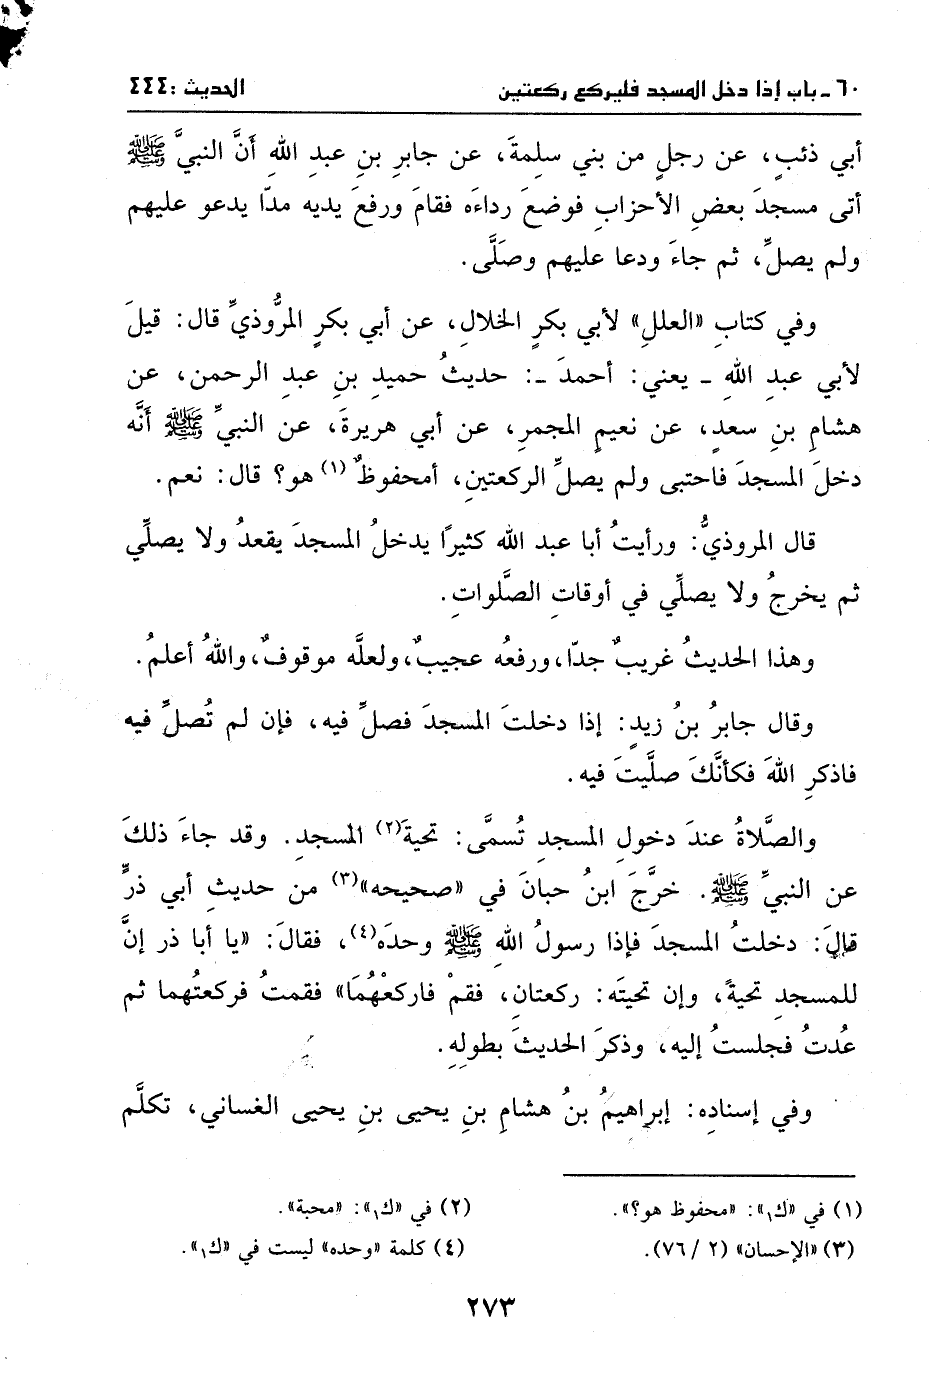 ٦٠ - باب إذا دخل المسجد فليركع ركعتين الحديث : ٤٤٤
أبي ذئبٍ، عن رجلٍ من بني سلِمةَ، عن جابرِ بنِ عبدِ اللهِ أنَّ النبيَّ ﷺ
أتى مسجدَ بعضِ الأحزابِ فوضعَ رداءَه فقامَ ورفعَ يديه مدًّا يدعو عليهم
ولم يصلِّ، ثم جاءَ ودعا عليهم وصَلَّى.
وفي كتابِ «العللِ» لأبي بكرٍ الخلالِ، عن أبي بكرٍ المرُّوذيِّ قال: قيلَ
لأبي عبدِ اللهِ ـ يعني: أحمدَ ـ: حديثُ حميدِ بنِ عبدِ الرحمنِ، عن
هشامِ بنِ سعدٍ، عن نعيمٍ المجمرِ، عن أبي هريرةَ، عن النبيِّ ﷺ أنَّه
دخلَ المسجدَ فاحتبى ولم يصلِّ الركعتينِ، أمحفوظٌ (١) هو؟ قال: نعم.
قال المروذيُّ: ورأيتُ أبا عبد الله كثيرًا يدخلُ المسجدَ يقعدُ ولا يصلِّي
ثم يخرجُ ولا يصلِّي في أوقاتِ الصَّلواتِ.
وهذا الحديثُ غريبٌ جدًّا، ورفعُه عجيبٌ، ولعلَّه موقوفٌ، واللهُ أعلمُ.
وقال جابرُ بنُ زيدٍ: إذا دخلتَ المسجدَ فصلِّ فيه، فإن لم تُصلِّ فيه
فاذكرِ اللهَ فكأنَّكَ صلَّيتَ فيه.
والصَّلاةُ عندَ دخولِ المسجدِ تُسمَّى: تحيةَ(٢) المسجدِ. وقد جاءَ ذلكَ
عن النبيِّ ﷺ. خرَّجَ ابنُ حبانَ في «صحيحه»(٣) من حديثِ أبي ذرٍّ
قالَ: دخلتُ المسجدَ فإذا رسولُ اللهِ ﷺ وحدَه(٤)، فقالَ: «يا أبا ذر إنَّ
للمسجدِ تحيةً، وإن تحيتَه: ركعتانِ، فقمْ فاركعْهُمَا» فقمتُ فركعتُهما ثم
عُدتُ فجلستُ إليه، وذكرَ الحديثَ بطولِهِ.
وفي إسنادِه: إبراهيمُ بنُ هشامِ بنِ يحيى بنِ يحيى الغساني، تكلَّم
(١) في «ك١»: «محفوظ هو؟». (٢) في «ك١»: «محبة».
(٣) «الإحسان» (٢ / ٧٦). (٤) كلمة «وحده» ليست في «ك١».
٢٧٣